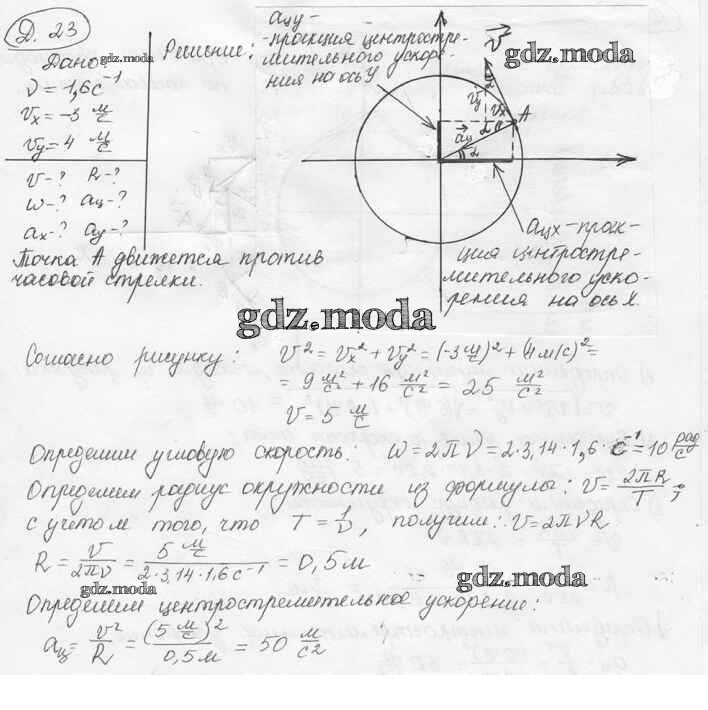 Д. 23
Дано
gdz.moda
ν = 1,6 с⁻¹
vx = -3 м/с
vy = 4 м/с
v-? R-?
ω-? aц-?
ax-? ay-?
Точка А движется против
часовой стрелки.
Решение:
aцy -
- проекция центростре-
мительного ускоре-
ния на ось У
v⃗
gdz.moda
vy
vx
α
A
a⃗ц
α
aцx - проек-
ция центростре-
мительного уско-
рения на ось X.
gdz.moda
Согласно рисунку: v² = vx² + vy² = (-3 м/с)² + (4 м/с)² =
= 9 м²/с² + 16 м²/с² = 25 м²/с²
v = 5 м/с
Определим угловую скорость: ω = 2πν = 2·3,14·1,6·с⁻¹ = 10 рад/с
Определим радиус окружности из формулы: v = 2πR/T ;
с учетом того, что T = 1/ν, получим: v = 2πνR
R = v/2πν = 5 м/с / 2·3,14·1,6 с⁻¹ = 0,5 м
gdz.moda
gdz.moda
Определим центростремительное ускорение:
aц = v²/R = (5 м/с)²/0,5 м = 50 м/с²